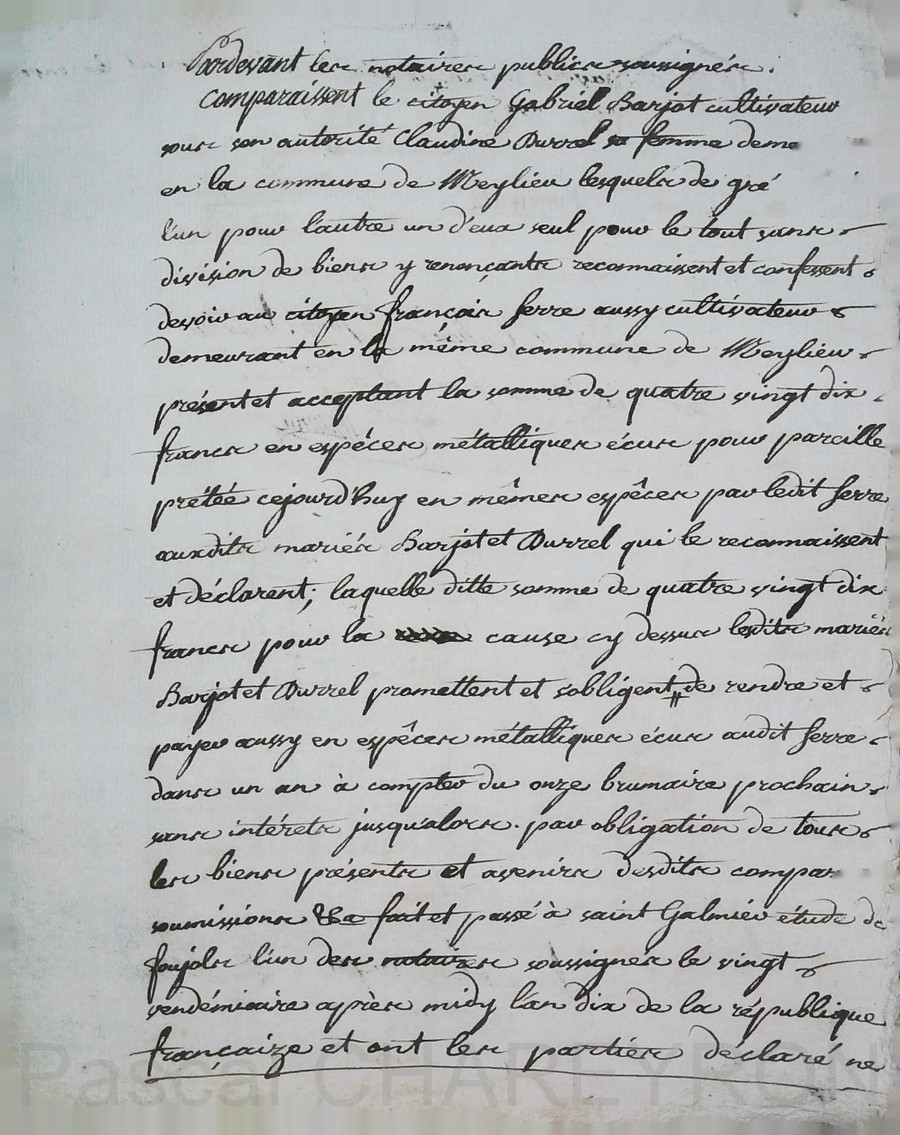 Pardevant les notaires publics soussignés.
comparaissent le citoyen Gabriel Barjot cultivateur
sous son autorité Claudine Durrel sa femme deme
en la commune de Meylieu lesquels de gré
l'un pour l'autre un d'eux seul pour le tout sans
division de biens y renonçants reconnaissent et confessent
devoir au citoyen françois serre aussy cultivateur
demeurant en la même commune de Meylieu
présent et acceptant la somme de quatre vingt dix
francs en espéces métalliques écus pour pareille
prétée cejourd'huy en mêmes espêces par ledit serre
auxdits mariés Barjot et Durrel qui le reconnaissent
et déclarent; laquelle ditte somme de quatre vingt dix
francs pour la cause cy dessus lesdits mariés
Barjot et Durrel promettent et s'obligent de rendre et
payer aussy en espêces métalliques écus audit serre
dans un an à compter du onze brumaire prochain
sans intérets jusqu'alors. par obligation de tous
les biens présents et avenirs desdits compar
soumissions &a fait et passé à saint Galmier étude de
foujols l'un des notaires soussignés le vingt
vendémiaire après midy l'an dix de la république
françaize et ont les parties déclaré ne
Pascal CHAREYRON